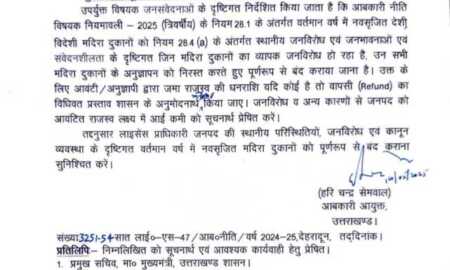 उपर्युक्त विषयक जनसंवेदनाओं के दृष्टिगत निर्देशित किया जाता है कि आबकारी नीति
विषयक नियमावली - 2025 (त्रिवर्षीय) के नियम 28.1 के अंतर्गत वर्तमान वर्ष में नवसृजित देशी,
विदेशी मदिरा दुकानों को नियम 28.4 (a) के अंतर्गत स्थानीय जनविरोध एवं जनभावनाओं एवं
संवेदनशीलता के दृष्टिगत जिन मदिरा दुकानों का व्यापक जनविरोध हो रहा है, उन सभी
मदिरा दुकानों के अनुज्ञापन को निरस्त करते हुए पूर्णरूप से बंद कराया जाना है। उक्त के
लिए आवंटी/अनुज्ञापी द्वारा जमा राजस्व की धनराशि यदि कोई है तो वापसी (Refund) का
विधिवत प्रस्ताव शासन के अनुमोदनार्थ किया जाए। जनविरोध व अन्य कारणों से जनपद को
आवंटित राजस्व लक्ष्य में आई कमी को सूचनार्थ प्रेषित करें।
तदनुसार लाइसेंस प्राधिकारी जनपद की स्थानीय परिस्थितियों, जनविरोध एवं कानून
व्यवस्था के दृष्टिगत वर्तमान वर्ष में नवसृजित मदिरा दुकानों को पूर्णरूप से बंद कराना
सुनिश्चित करें।
(हरि चन्द्र सेमवाल)
आबकारी आयुक्त,
उत्तराखण्ड।
संख्या 3251-54 सात लाई०-एस-47/आब०नीति/वर्ष 2024-25, देहरादून, तद्दिनांक।
प्रतिलिपिः- निम्नलिखित को सूचनार्थ एवं आवश्यक कार्यवाही हेतु प्रेषित।
1. प्रमुख सचिव, मा० मुख्यमंत्री, उत्तराखण्ड शासन।